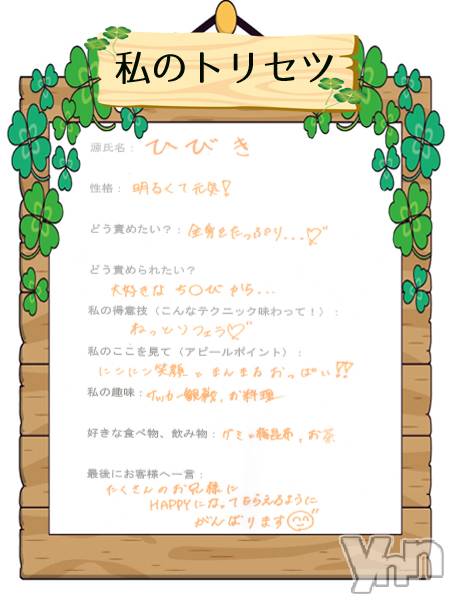 私のトリセツ
源氏名： ひびき
性格： 明るくて元気!
どう責めたい？： 全身をたっぷり...♡
どう責められたい？
大好きな ち○び から...
私の得意技（こんなテクニック味わって！）：
ねっとりフェラ♡
私のここを見て（アピールポイント）：
ニコニコ笑顔と まんまるおっぱい!!
私の趣味： サッカー観戦、お料理
好きな食べ物、飲み物： グミと梅昆布、お茶
最後にお客様へ一言：
たくさんのお兄様に
HAPPYになってもらえるように
がんばります